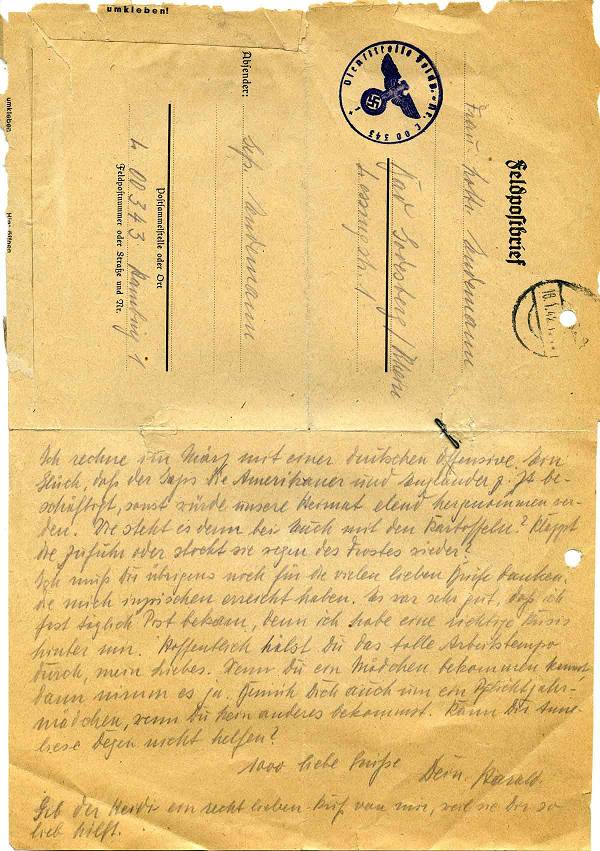 umkleben!
umkleben
Feldpostbrief
Dienststelle Feldp.-Nr. L 00 343
18.1.42
Frau
Bad Godesberg / Rhein
Lessingstr. 1
Absender:
Gefr.
L 00343 Hamburg 1
Postsammelstelle oder Ort
Feldpostnummer oder Straße und Nr.
Ich rechne im März mit einer deutschen Offensive. Ein
Glück, daß der Japs die Amerikaner und Engländer z. Zt be-
schäftigt, sonst würde unsere Heimat elend hergenommen wer-
den. Wie steht es denn bei Euch mit den Kartoffeln? Klappt
die Zufuhr oder stockt sie wegen des Frostes wieder?
Ich muß Dir übrigens noch für die vielen lieben Grüße danken,
die mich inzwischen erreicht haben. Es war sehr gut, daß ich
fast täglich Post bekam, denn ich habe eine richtige Krisis
hinter mir. Hoffentlich hälst Du das tolle Arbeitstempo
durch, mein Liebes. Wenn Du ein Mädchen bekommen kannst,
dann nimm es ja. Bemüh Dich auch um ein Pflichtjahr-
mädchen, wenn Du kein anderes bekommst. Kann Dir Anne-
liese Degen nicht helfen?
1000 liebe Grüße
Dein Harald.
Gib der Heidi ein recht lieben Kuß von mir, weil sie Dir so
lieb hilft.